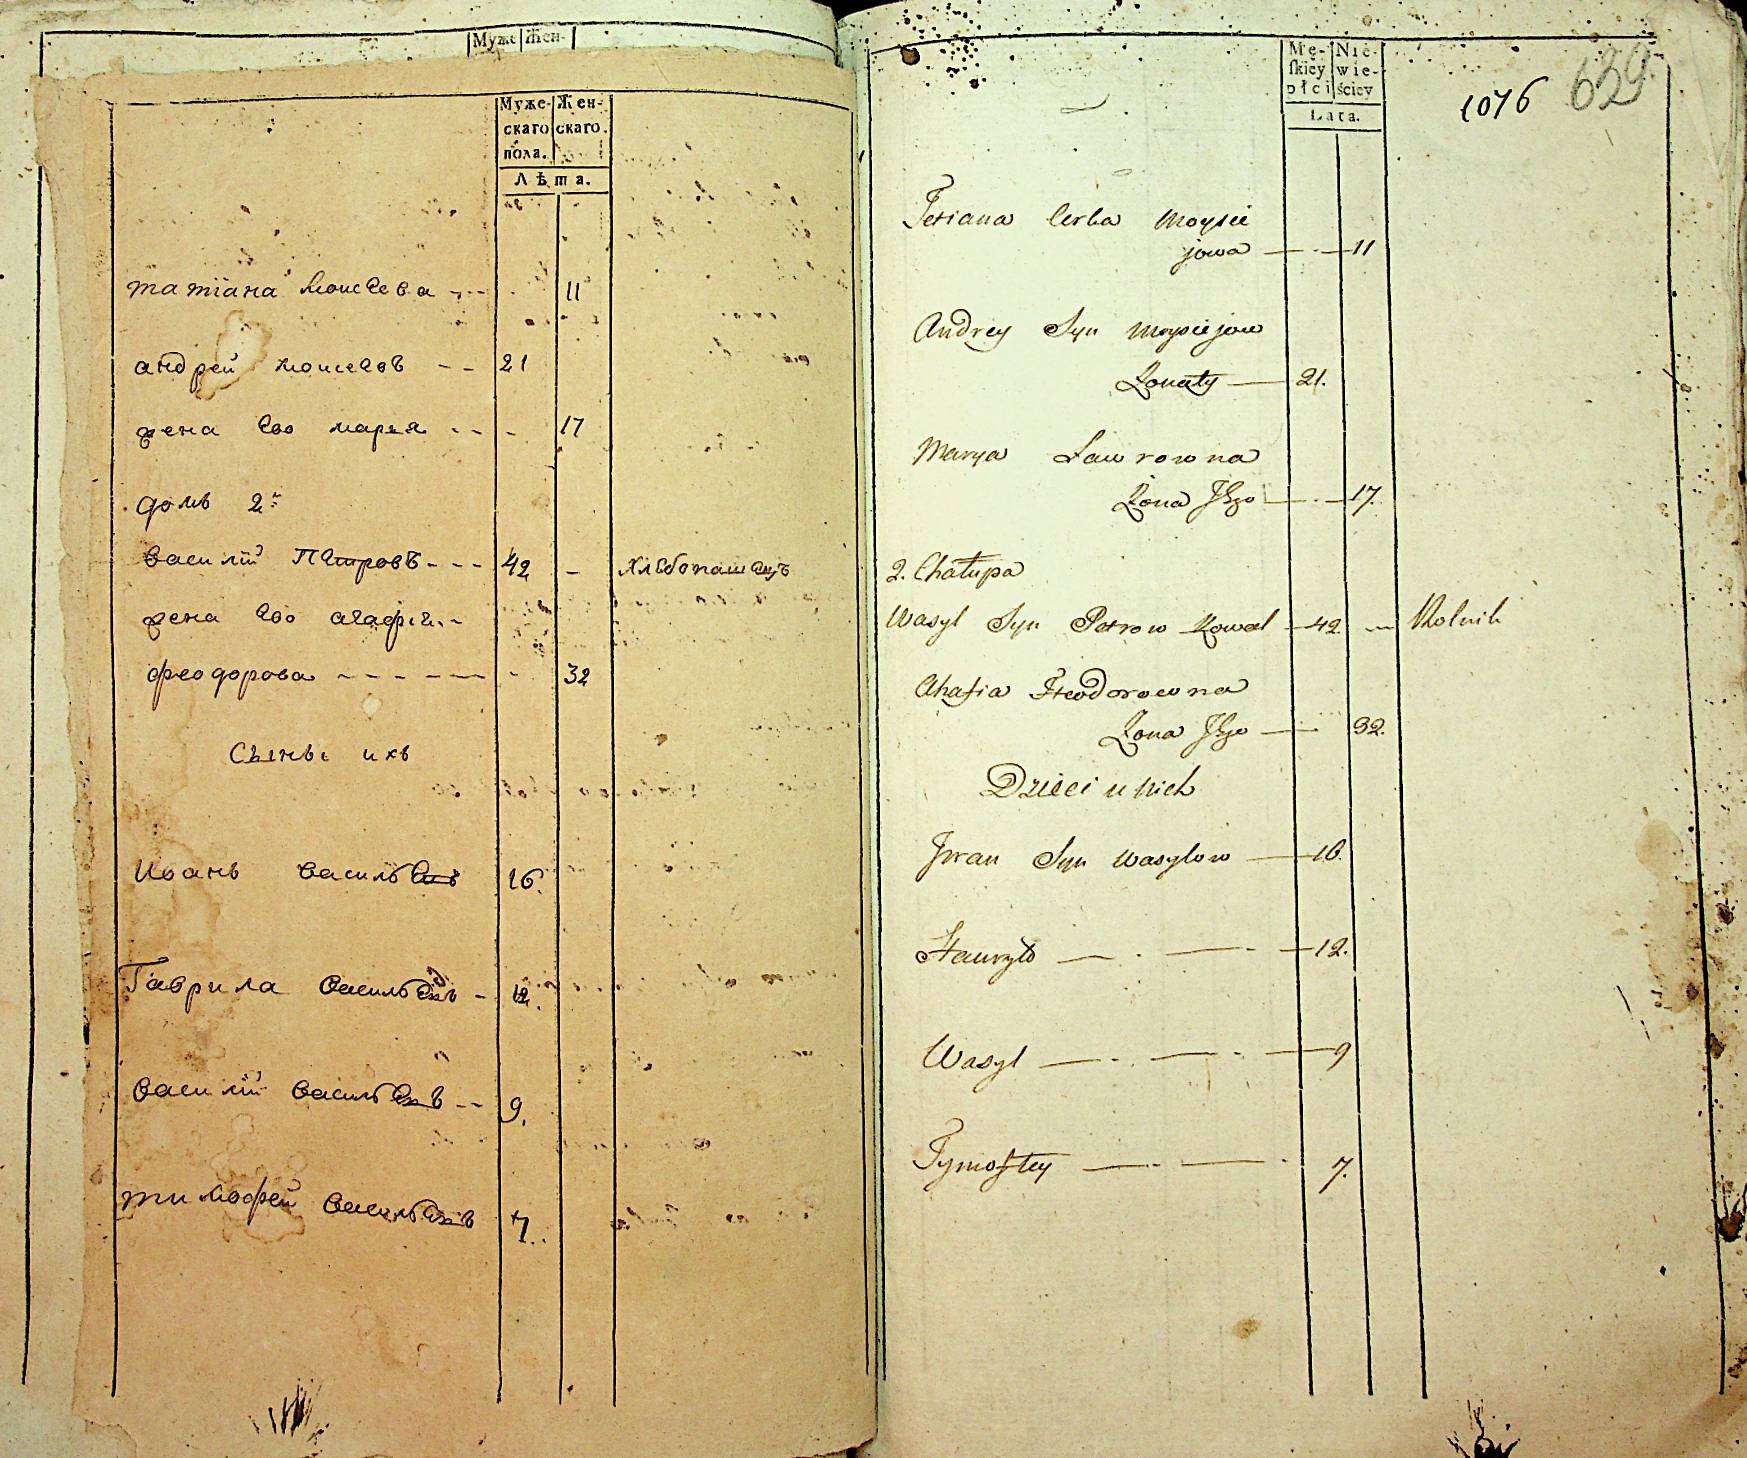 Муже Жен-
Муже- Жен-
скаго скаго.
пола.
Лѣта.
татiана Моисеева 11
андрей моисеевъ 21
жена его марья 17
домъ 2й
Василiй Петровъ 42 – хлѣбопашецъ
жена его агафiя
феодорова 32
Сыны ихъ
Иванъ Васильевъ 16.
Гаврила Васильевъ 12.
Василiй Васильевъ 9.
тимофей Васильевъ 7.
Mę- Nie-
skiey wie-
płci ściey
Lata.
1076 639
Tetiana Corka Moysie
jowa 11
Andrey Syn Moysiejow
Żonaty 21.
Marya Lawrowna
Żona Jego 17.
2. Chałupa
Wasyl Syn Petrow Kowal 42 Rolnik
Ahafia Fteodorowna
Żona Jego 32.
Dzieci u nich
Iwan Syn Wasylow 16.
Hawryło 12.
Wasyl 9
Tymoftey 7.